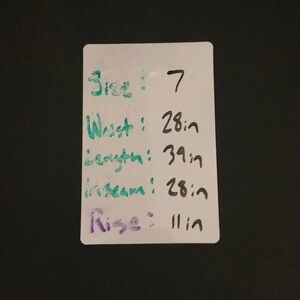 Size: 7
Waist: 28in
Length: 39in
inseam: 28in
Rise: 11in